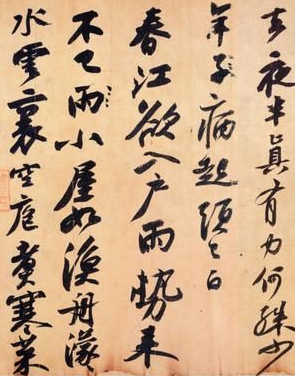 去夜半真有力何殊少
年子病起頭已白
春江欲入户雨勢来
不已雨小屋如漁舟濛
水雲裏空庖煑寒菜